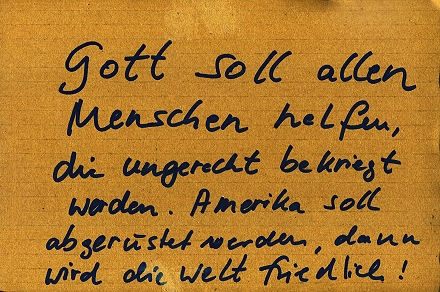 Gott soll allen
Menschen helfen,
die ungerecht bekriegt
werden. Amerika soll
abgerüstet werden, dann
wird die Welt friedlich!